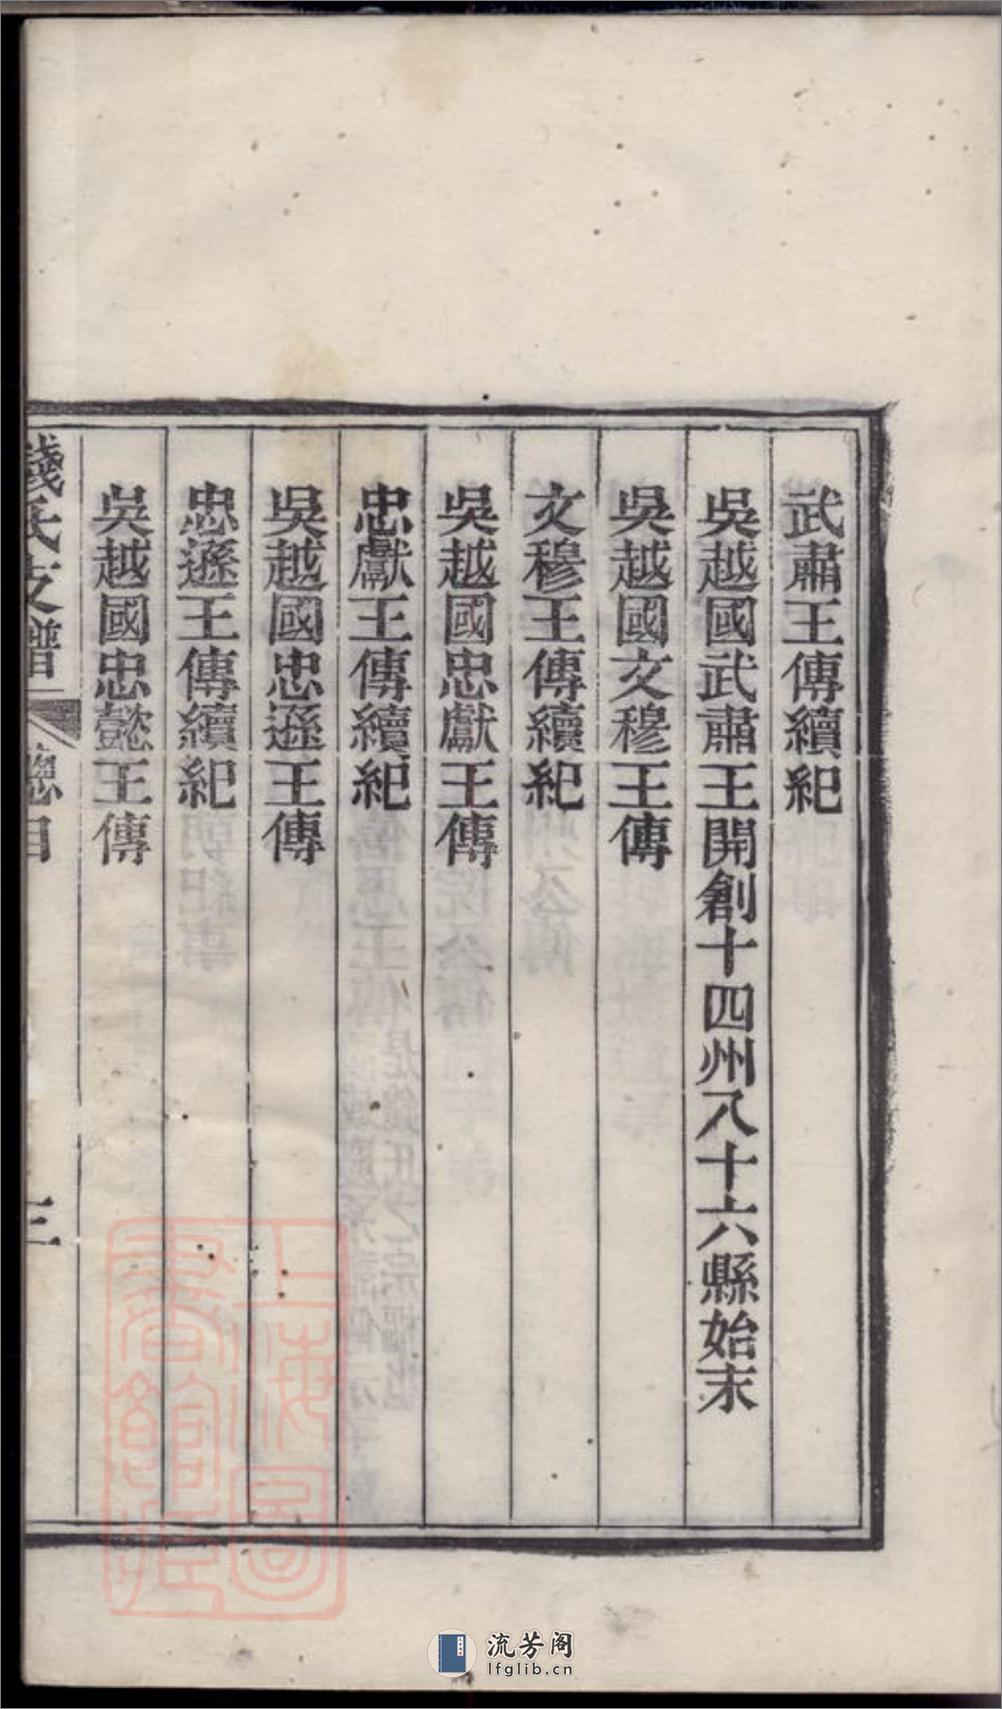 武肅王傳續紀
吳越國武肅王開創十四州八十六縣始末
吳越國文穆王傳
文穆王傳續紀
吳越國忠獻王傳
忠獻王傳續紀
吳越國忠遜王傳
忠遜王傳續紀
吳越國忠懿王傳
錢氏支譜 總目 三
上海圖書館藏
流芳阁
lfglib.cn